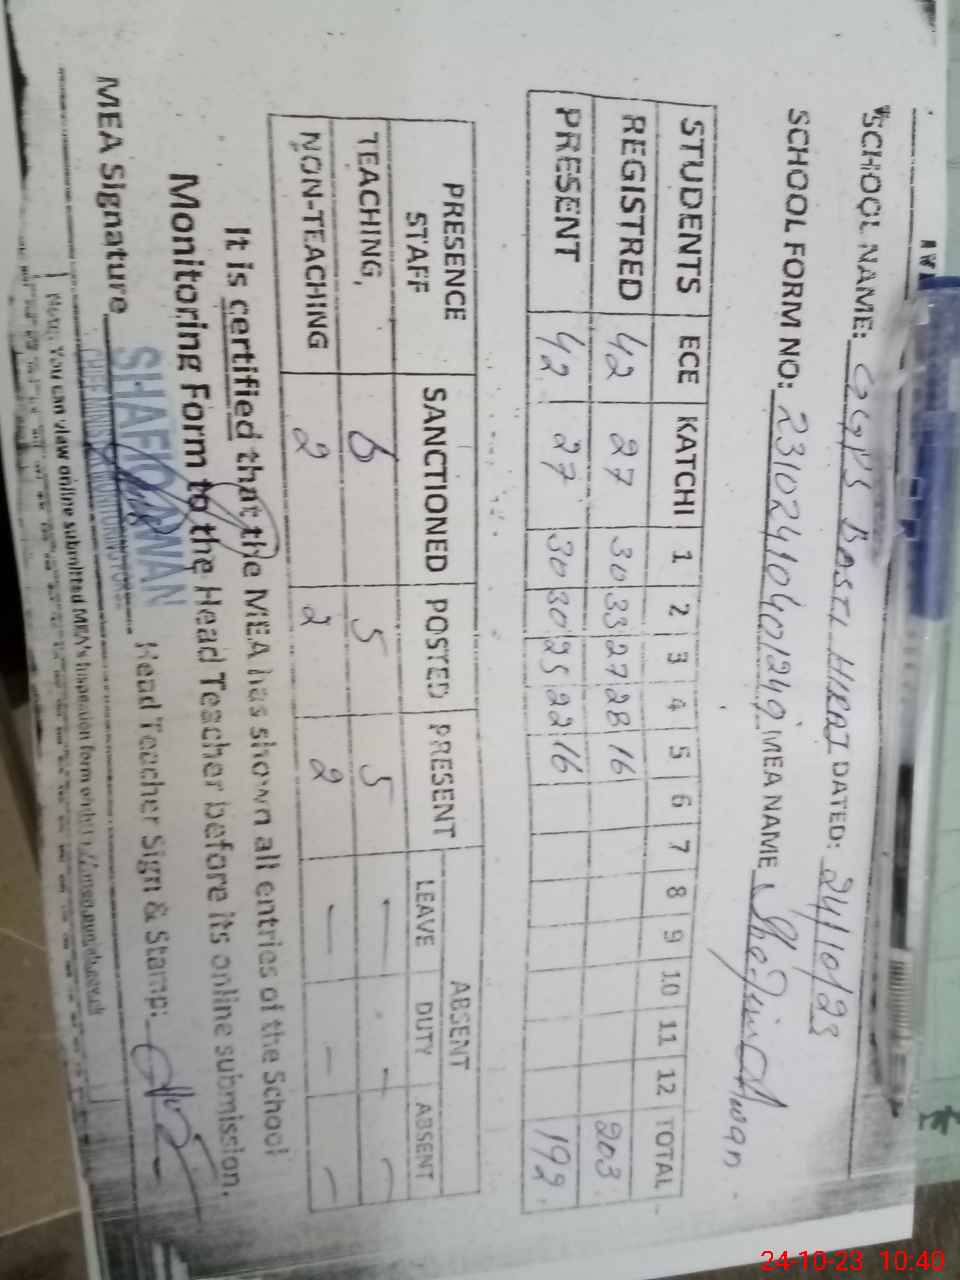 SCHOOL NAME: GGPS BASTI HIRAJ DATED: 24/10/23
SCHOOL FORM NO: 23102410401249 MEA NAME Shafiq Awan
STUDENTS ECE KATCHI 1 2 3 4 5 6 7 8 9 10 11 12 TOTAL
REGISTRED 42 27 30 33 27 28 16 203
PRESENT 42 27 30 30 25 22 16 192
PRESENCE STAFF SANCTIONED POSTED PRESENT ABSENT
LEAVE DUTY ABSENT
TEACHING 6 5 5 - - -
NON-TEACHING 2 2 2 - - -
It is certified that the MEA has shown all entries of the School
Monitoring Form to the Head Teacher before its online submission.
MEA Signature SHAFIQ AWAN Head Teacher Sign & Stamp:
Note: You can view online submitted MEA's Inspection form
24-10-23 10:40